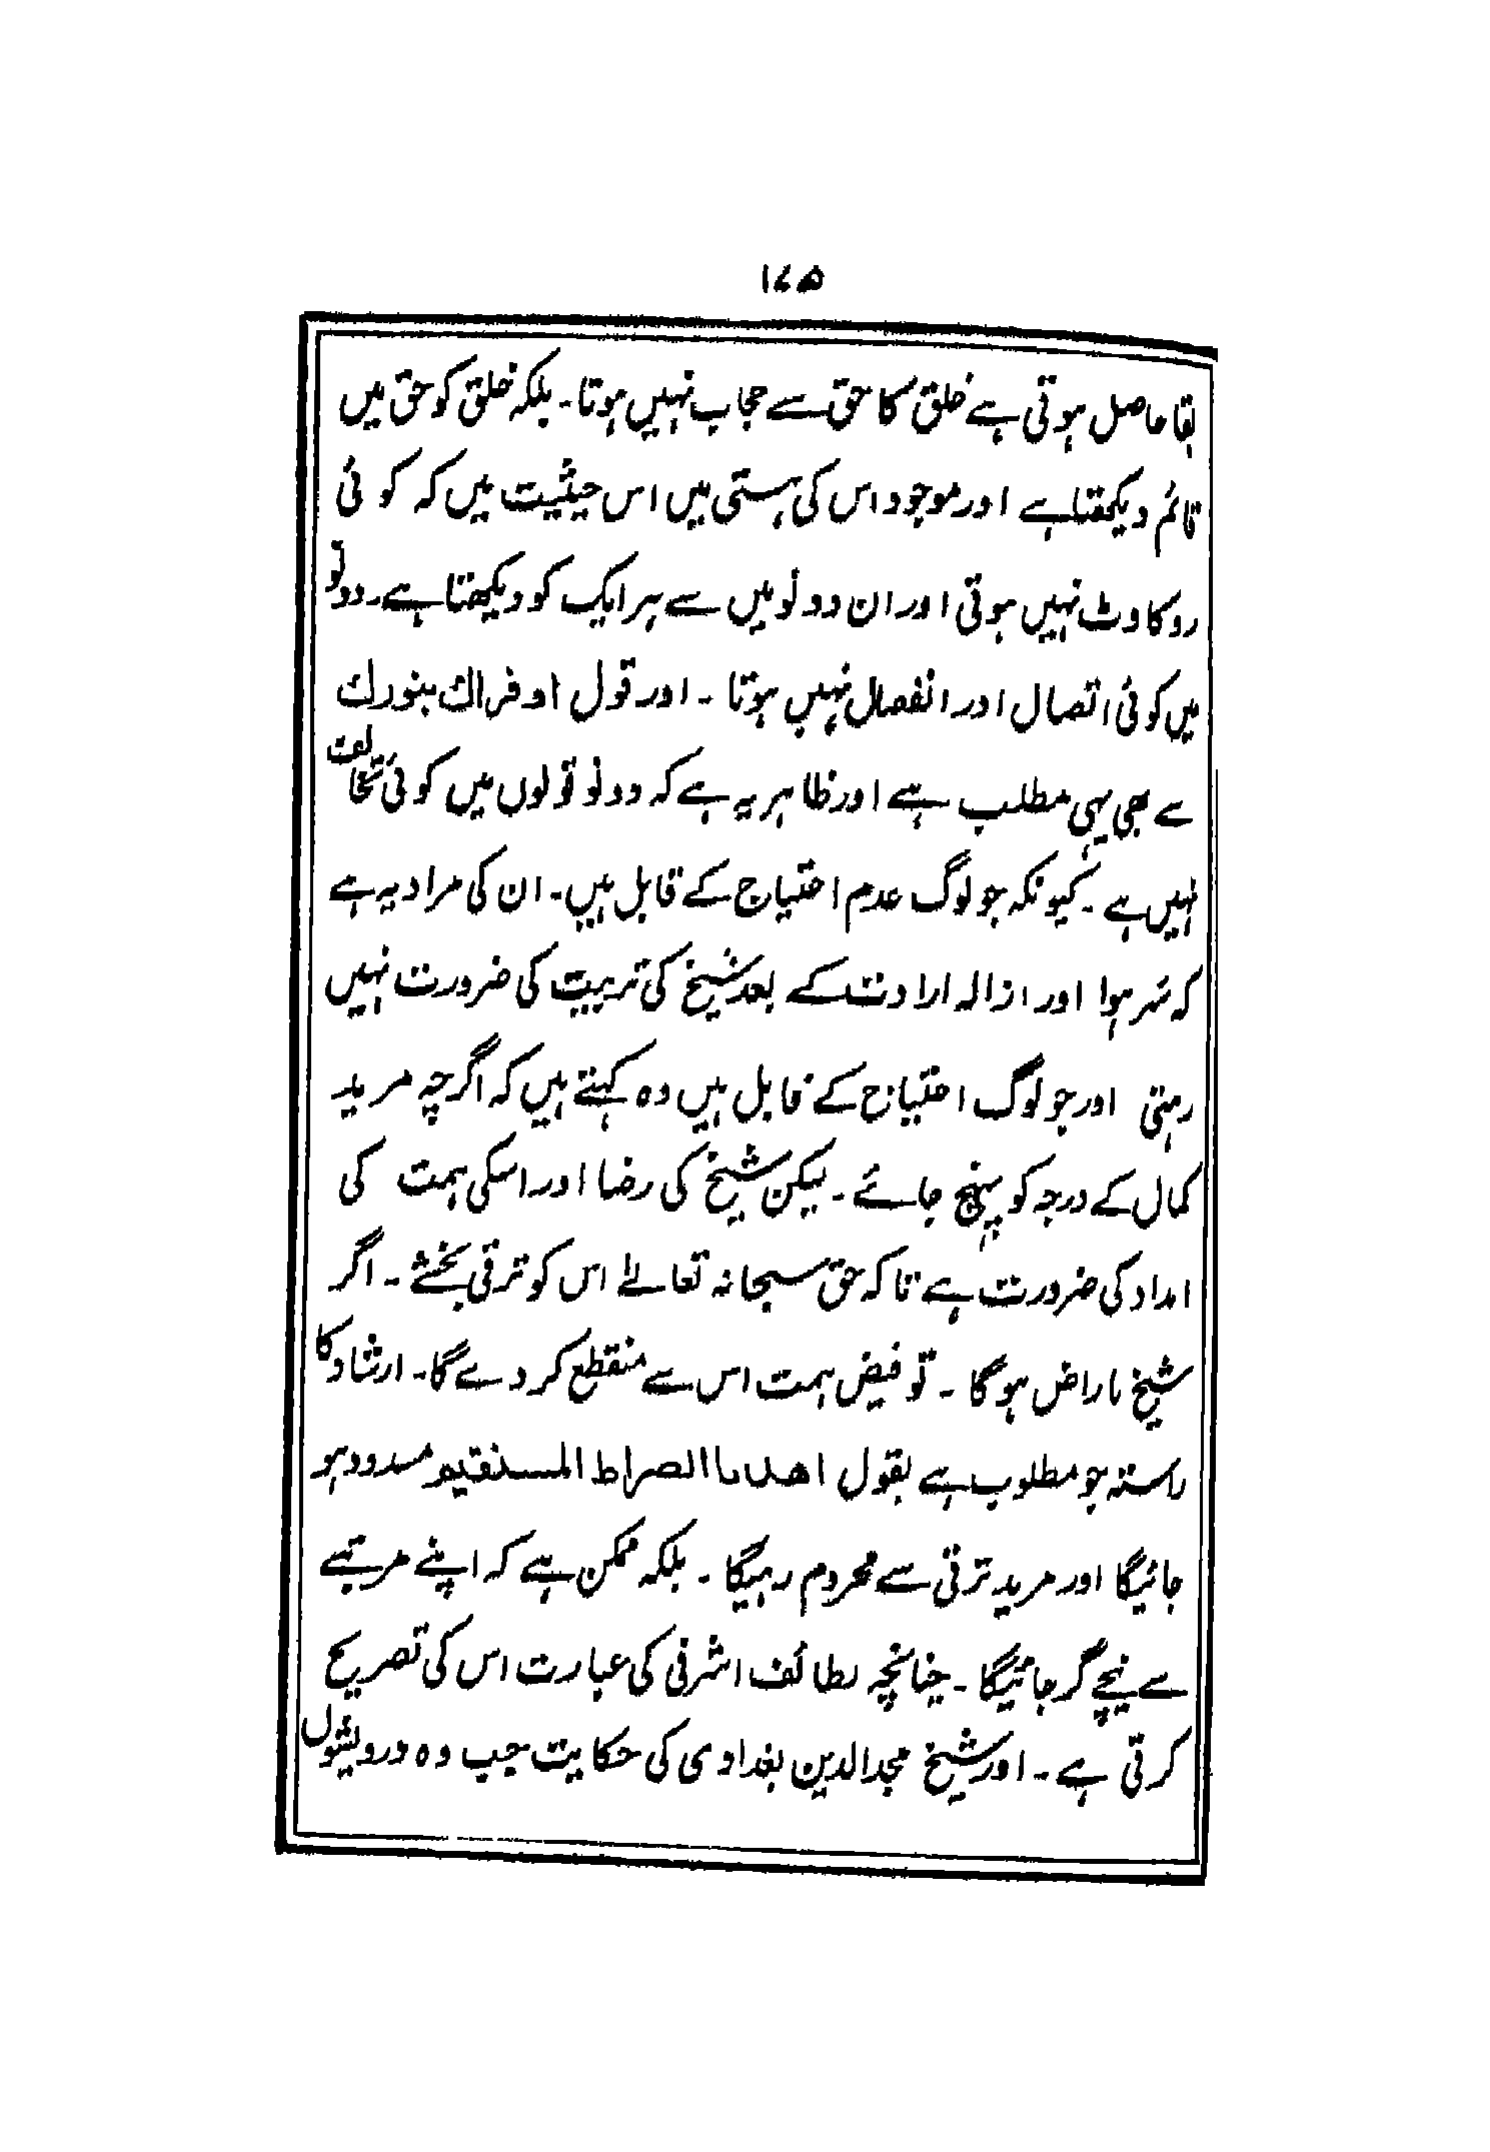 ۱۷۵
بقا حاصل ہوتی ہے خلق کا حق سے حجاب نہیں ہوتا۔ بلکہ خلق کو حق میں
قائم دیکھتا ہے اور موجود اس کی ہستی میں اس حیثیت میں کہ کوئی
روکاوٹ نہیں ہوتی اور ان دونو میں سے ہر ایک کو دیکھتا ہے۔ دونو
میں کوئی اتصال اور انفصال نہیں ہوتا ۔ اور قول او فراك بنورك
سے بھی یہی مطلب ہے اور ظاہر یہ ہے کہ دونو قولوں میں کوئی مخالفت
نہیں ہے ۔ کیونکہ جو لوگ عدم احتیاج کے قابل ہیں۔ ان کی مراد یہ ہے
کہ ہوا اور ازالہ ارادت کے بعد شیخ کی تربیت کی ضرورت نہیں
رہتی اور جو لوگ احتیاج کے قابل ہیں وہ کہتے ہیں کہ اگرچہ مرید
کمال کے درجہ کو پہنچ جائے ۔ لیکن شیخ کی رضا اور اسکی ہمت کی
امداد کی ضرورت ہے تاکہ حق سبحانہ تعالےٰ اس کو ترقی بخشے ۔ اگر
شیخ ناراض ہو گا ۔ تو فیض ہمت اس سے منقطع کر دے گا۔ ارشاد کا
راستہ جو مطلوب ہے بقول اهدنا الصراط المستقيم مسدود ہو
جائیگا اور مرید ترقی سے محروم رہیگا ۔ بلکہ ممکن ہے کہ اپنے مرتبے
سے نیچے گر جائیگا ۔ چنانچہ لطائف اشرفی کی عبارت اس کی تصریح
کرتی ہے ۔ اور شیخ مجدالدین بغدادی کی حکایت جب وہ درویشوں